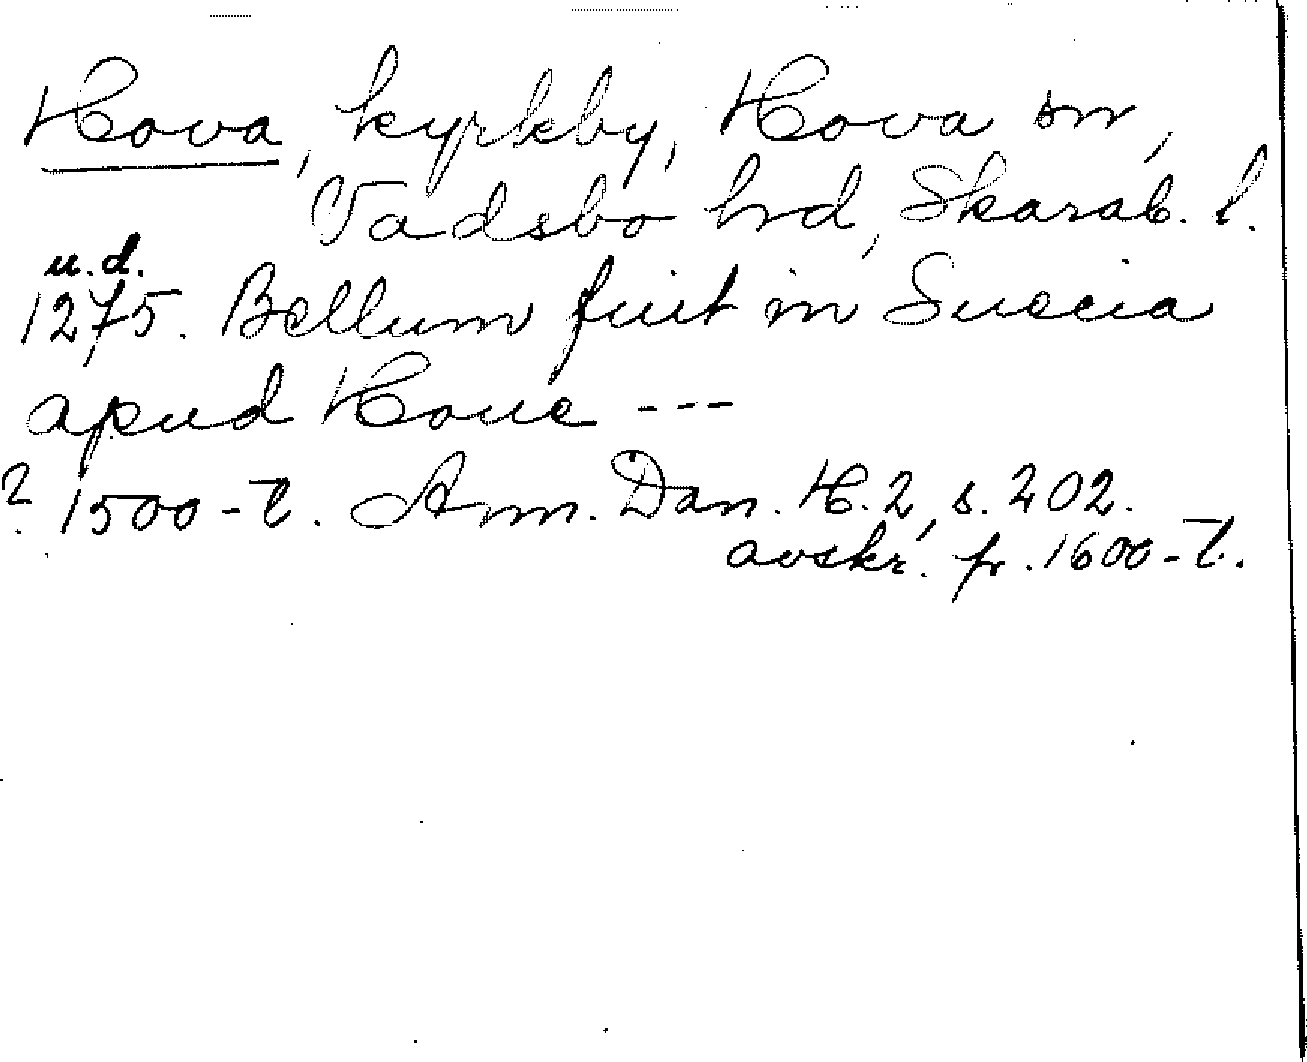 Hova, kyrkby, Hova sn,
Vadsbo hrd, Skarab. l.
u.d.
1275. Bellum fuit in Suecia
apud Houe ---
? 1500-t. Ann. Dan. H. 2, s. 202.
avskr. fr. 1600-t.